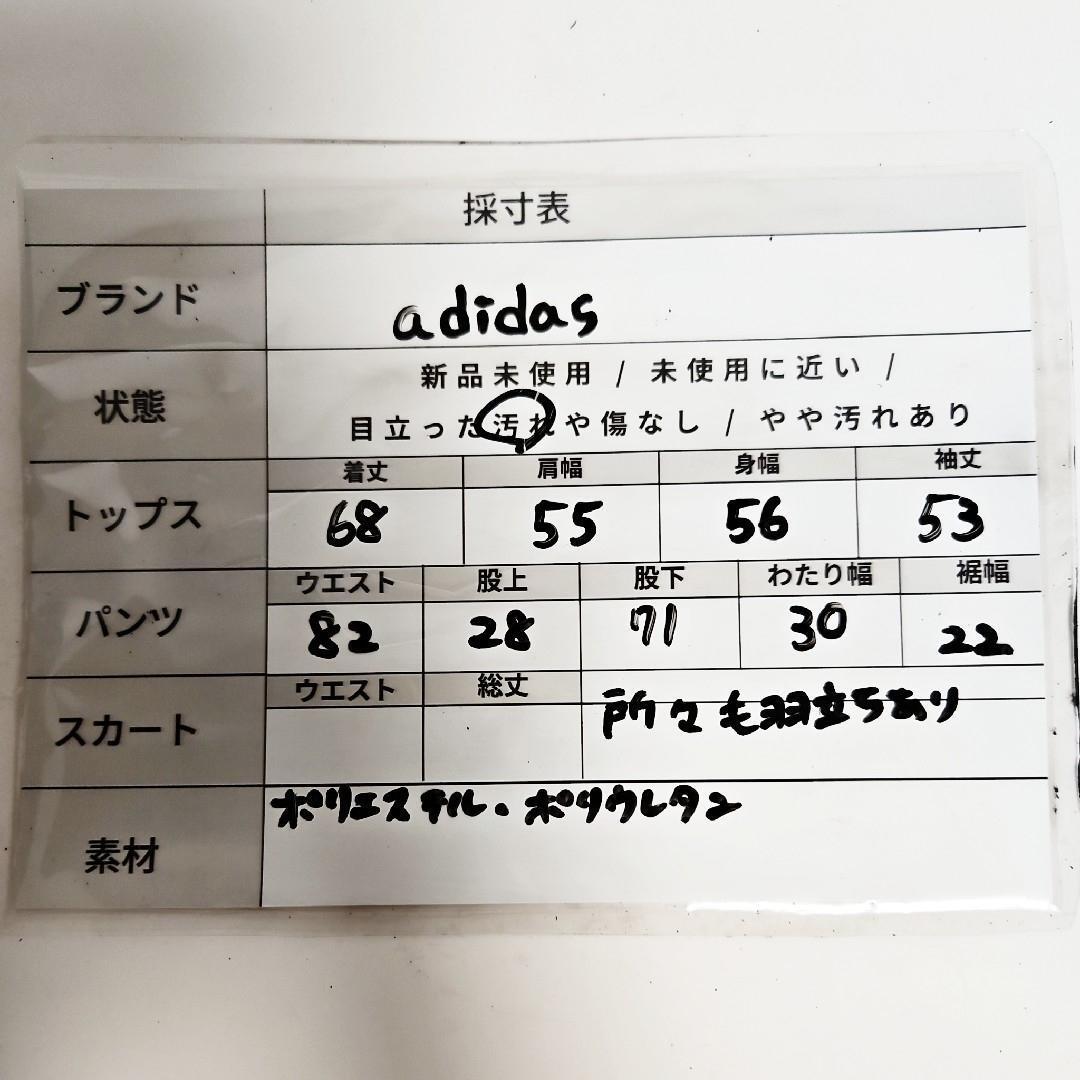 採寸表
ブランド adidas
状態 新品未使用 / 未使用に近い /
目立った汚れや傷なし / やや汚れあり
着丈 肩幅 身幅 袖丈
トップス 68 55 56 53
ウエスト 股上 股下 わたり幅 裾幅
パンツ 82 28 71 30 22
ウエスト 総丈
スカート 所々毛羽立ちあり
素材 ポリエステル・ポリウレタン